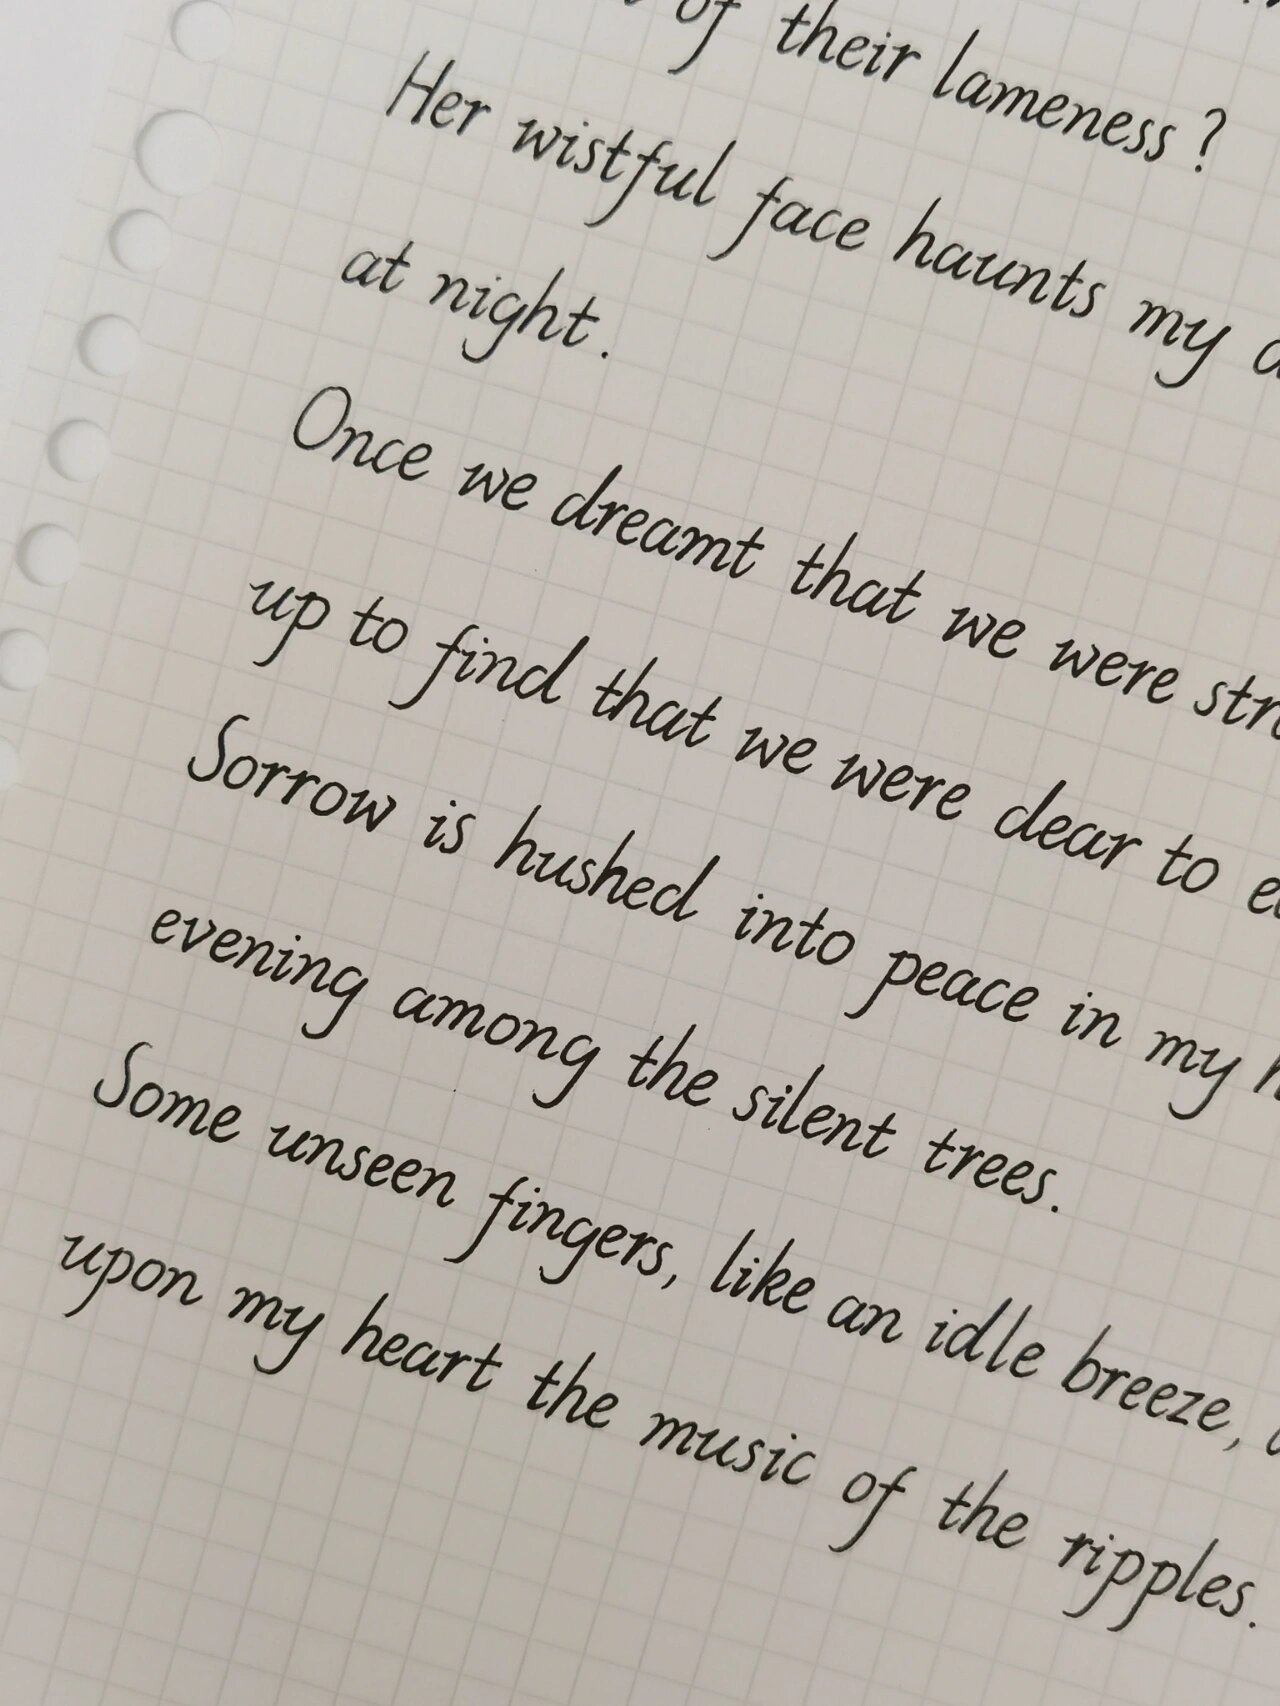 of their lameness?
Her wistful face haunts my
at night.
Once we dreamt that we were
up to find that we were dear to
Sorrow is hushed into peace in my
evening among the silent trees.
Some unseen fingers, like an idle breeze,
upon my heart the music of the ripples.